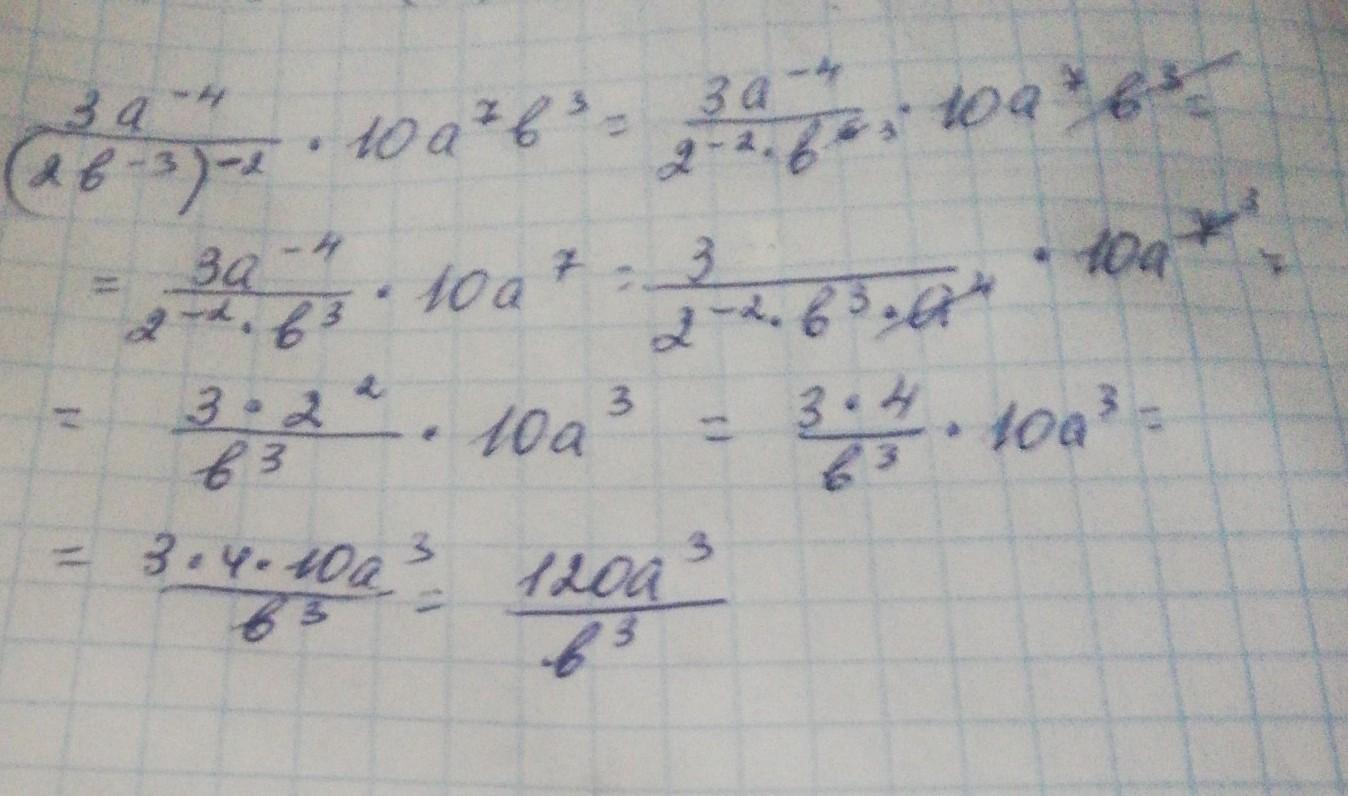 3a⁻⁴/(2в⁻³)⁻² · 10a⁷в³ = 3a⁻⁴/2⁻²·в⁶ ³ · 10a⁷в³ =
= 3a⁻⁴/2⁻²·в³ · 10a⁷ = 3/2⁻²·в³·a⁴ · 10a⁷ ³ =
= 3·2²/в³ · 10a³ = 3·4/в³ · 10a³ =
= 3·4·10a³/в³ = 120a³/в³